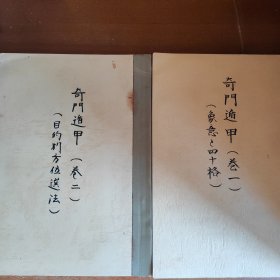 奇門遁甲（巻一）
（象意と四十格）
奇門遁甲（巻二）
（目的別方位選法）